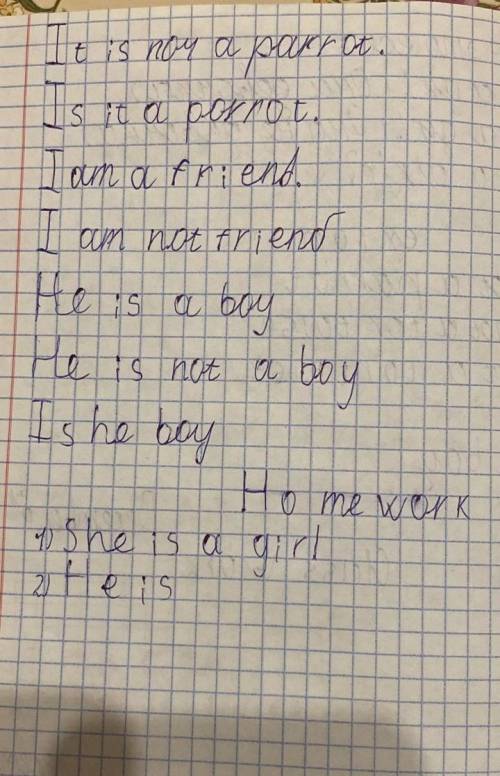 It is noy a parrot.
Is it a porrot.
I am a friend.
I am not friend
He is a boy
He is not a boy
Is he boy
Homework
1) She is a girl
2) He is